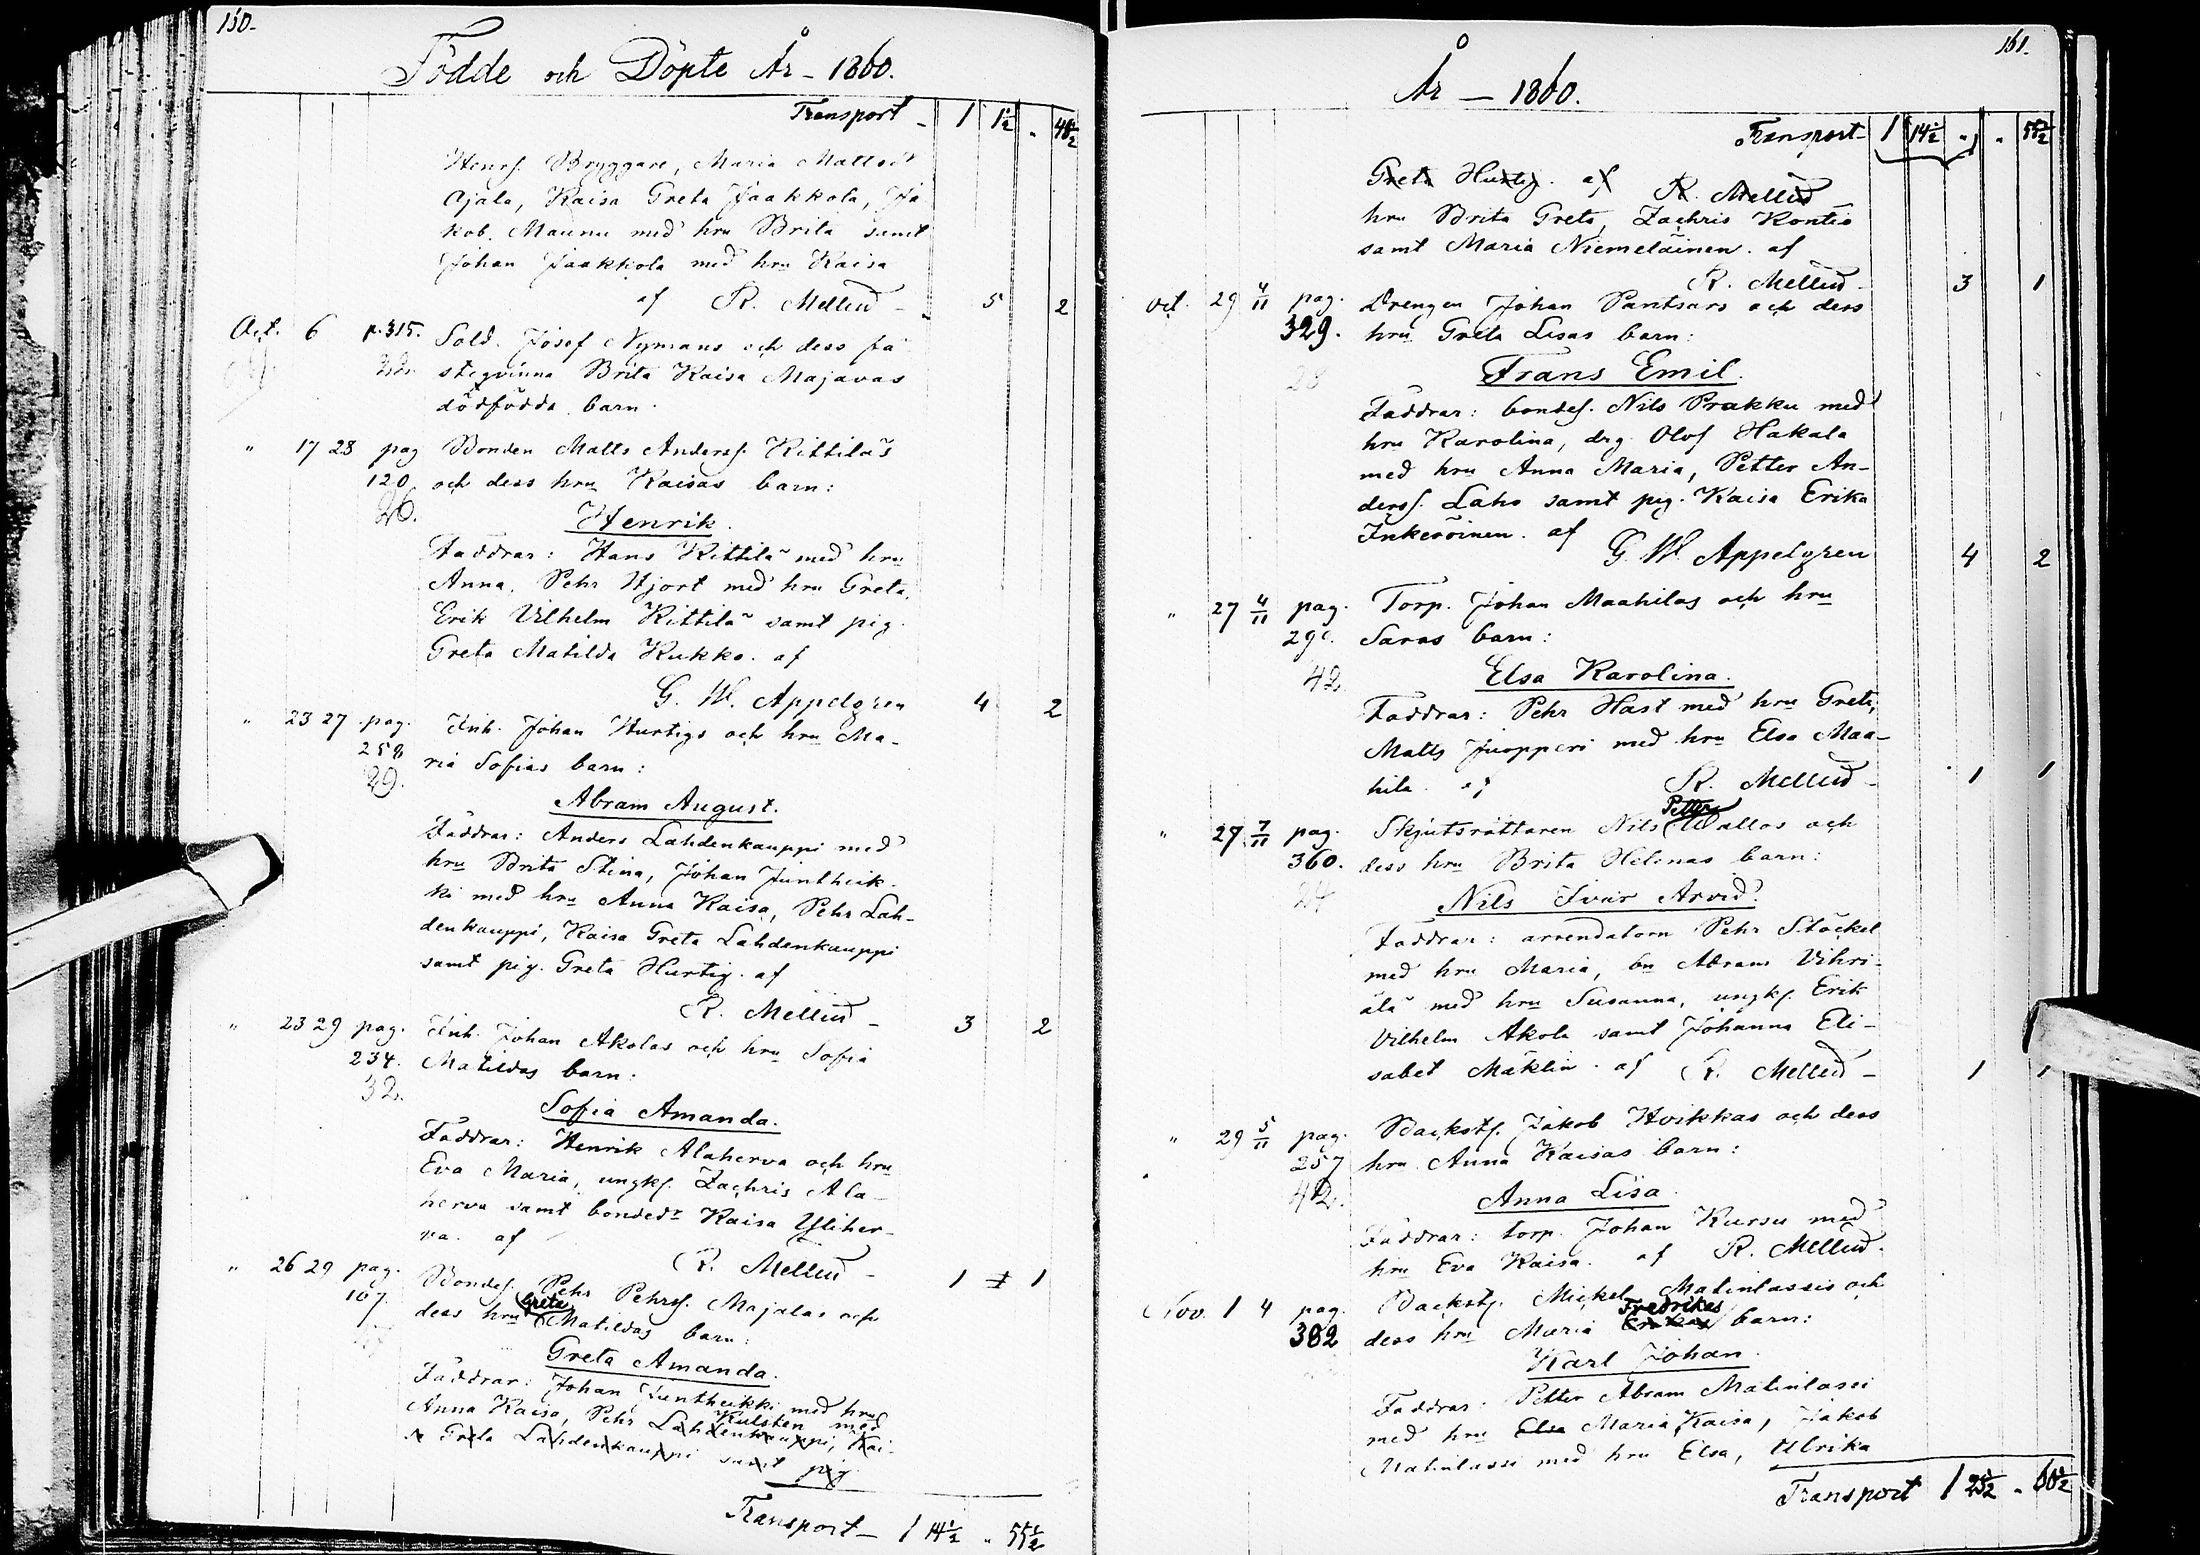 150.
Födde och Döpte År – 1860.
Transport – 1 1½ " 48½
Henrs. Bryggare, Maria Mattsdr
Ajala, Kaisa Greta Jaakkola, Ja
kob Maunu med hru Brita samt
Johan Jaakkola med hru Kaisa
af R. Mellud – 5 2
Oct. 6 p. 315. Sold. Josef Nymans och dess fä
stegvinna Brita Kaisa Majavas
dödfödda barn.
" 17 28 pag Bonden Matts Anderss. Kittilä's
120 och dess hru Kaisas barn:
26. Henrik.
Faddrar: Hans Kittilä med hru
Anna, Pehr Hjort med hru Greta,
Erik Vilhelm Kittilä samt pig.
Greta Matilda Kukko. af
G. W. Appelgren 4 2
" 23 27 pag. Inh. Johan Hurtigs och hru Ma-
258 ria Sofias barn:
29. Abram August.
Faddrar: Anders Lahdenkauppi med
hru Brita Stina, Johan Juntheik-
ki med hru Anna Kaisa, Pehr Lah-
denkauppi, Kaisa Greta Lahdenkauppi
samt pig. Greta Hurtig. af
R. Mellud – 3 2
" 23 29 pag. Inh. Johan Akolas och hru Sofia
234. Matildas barn:
32. Sofia Amanda.
Faddrar: Henrik Alaherva och hru
Eva Maria, ungks. Zachris Ala-
herva samt bondedr Kaisa Yliher-
va. af
R. Mellud – 1 1
" 26 29 pag. Bondes. Pehr Pehrss. Majalas och
167 dess hru Greta Matildas barn:
Greta Amanda.
Faddrar: Johan Juntheikki med hru
Anna Kaisa, Pehr Lahdenkauppi, Kai-
Kulsten med
sa Greta Lahdenkauppi samt pig.
Transport – 1 14½ " 55½
161.
År – 1860.
Transport – 1 14½ " " 55½
Greta Hurtig. af R. Mellud
hru Brita Greta, Zachris Kontio
samt Maria Niemeläinen. af
R. Mellud – 3 1
Oct. 29 4/11 pag. Drengen Johan Pantsars och dess
329. hru Greta Lisas barn:
28 Frans Emil.
Faddrar: bondes. Nils Prakku med
hru Karolina, drg. Olof Hakala
med hru Anna Maria, Petter An-
derss. Laho samt pig. Kaisa Erika
Inkeröinen. af
G. W. Appelgren 4 2
" 27 4/11 pag. Torp. Johan Maahilas och hru
Saras barn:
42. Elsa Karolina.
Faddrar: Pehr Hast med hru Greta,
Matts Juopperi med hru Elsa Maa-
hila. af R. Mellud – 1 1
" 27 7/11 pag. Skjutsrättaren Nils Petter Wallos och
360. dess hru Brita Helenas barn:
24 Nils Ivar Arvid.
Faddrar: arrendatorn Pehr Stöckel
med hru Maria, bn Abram Vihri-
älä med hru Susanna, ungks. Erik
Vilhelm Akola samt Johanna Eli-
sabet Mäklin. af R. Mellud – 1 1
" 29 5/11 pag. Backsts. Jakob Hvikkas och dess
257 hru Anna Kaisas barn:
42. Anna Lisa.
Faddrar: torp. Johan Kursu med
hru Eva Kaisa. af R. Mellud.
Nov. 1 4 pag. Backsts. Mickel Matinlassis och
382 dess hru Maria Fredrikas barn:
Karl Johan.
Faddrar: Petter Abram Matinlassi
med hru Elsa Maria Kaisa, Jakob
Matinlassi med hru Elsa, Ulrika
Transport 1 23½ " 60½